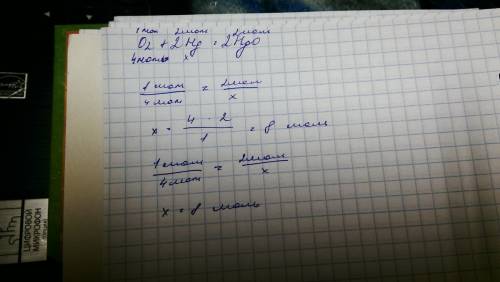 1 моль 2 моль 2 моль
O2 + 2Hg = 2HgO
4 моль x
1 моль / 4 моль = 2 моль / x
x = 4 · 2 / 1 = 8 моль
1 моль / 4 моль = 2 моль / x
x = 8 моль
ЦИФРОВОЙ
МИКРОФОН